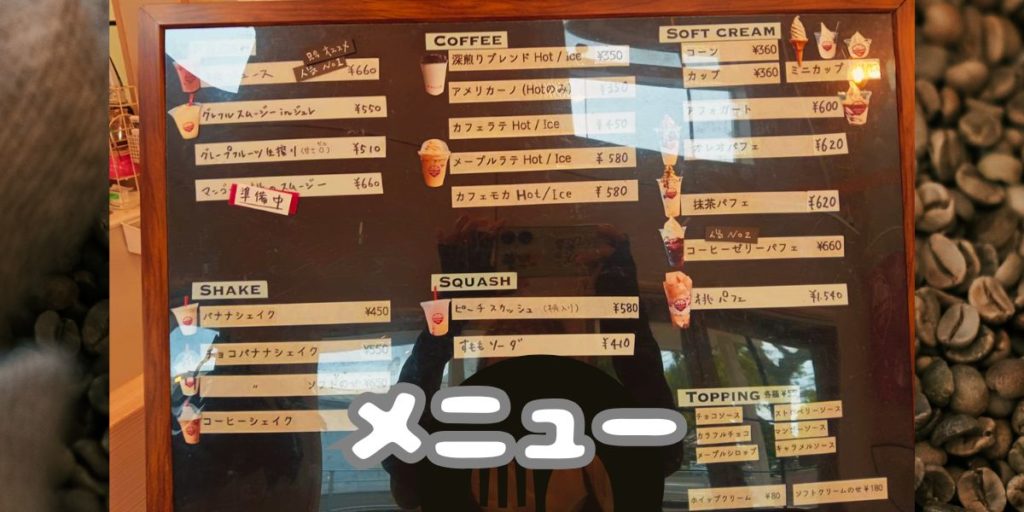 店長オススメ
人気No1
ュース ¥660
¥550
グレープフルーツ生搾り ¥510
スムージー ¥660
準備中
SHAKE
バナナシェイク ¥450
チョコバナナシェイク ¥550
〃
コーヒーシェイク
COFFEE
深煎りブレンド Hot / ice ¥350
アメリカーノ (Hotのみ) ¥350
カフェラテ Hot / Ice ¥450
メープルラテ Hot / Ice ¥580
カフェモカ Hot / Ice ¥580
SQUASH
ピーチスカッシュ (桃入り) ¥580
すももソーダ ¥410
SOFT CREAM
コーン ¥360
カップ ¥360
ミニカップ
アフォガード ¥600
オレオパフェ ¥620
抹茶パフェ ¥620
人気No2
コーヒーゼリーパフェ ¥660
桃パフェ ¥1,540
TOPPING 各種
チョコソース
ストロベリーソース
カラフルチョコ
マンゴーソース
メープルシロップ
キャラメルソース
ホイップクリーム ¥80
ソフトクリームのせ ¥180
メニュー